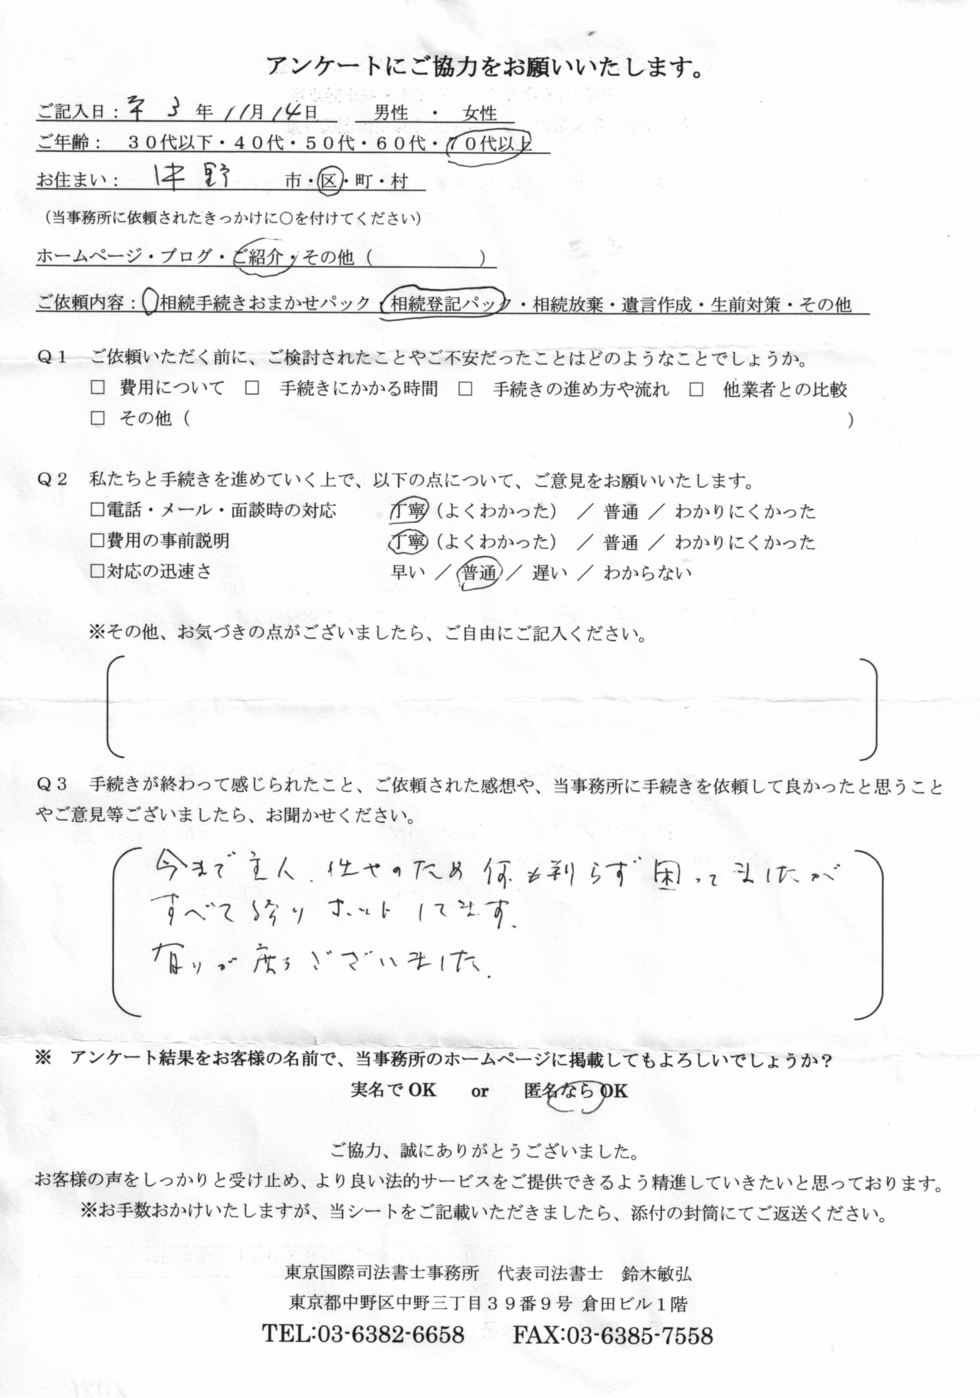 アンケートにご協力をお願いいたします。
ご記入日: 3 年 11月 14日 男性 ・ 女性
ご年齢： 30代以下・40代・50代・60代・70代以上
お住まい： 中野 市・区・町・村
（当事務所に依頼されたきっかけに○を付けてください）
ホームページ・ブログ・ご紹介・その他（ ）
ご依頼内容：相続手続きおまかせパック・相続登記パック・相続放棄・遺言作成・生前対策・その他
Q1 ご依頼いただく前に、ご検討されたことやご不安だったことはどのようなことでしょうか。
□ 費用について □ 手続きにかかる時間 □ 手続きの進め方や流れ □ 他業者との比較
□ その他（ ）
Q2 私たちと手続きを進めていく上で、以下の点について、ご意見をお願いいたします。
□電話・メール・面談時の対応 丁寧（よくわかった） ／ 普通 ／ わかりにくかった
□費用の事前説明 丁寧（よくわかった） ／ 普通 ／ わかりにくかった
□対応の迅速さ 早い ／ 普通 ／ 遅い ／ わからない
※その他、お気づきの点がございましたら、ご自由にご記入ください。
Q3 手続きが終わって感じられたこと、ご依頼された感想や、当事務所に手続きを依頼して良かったと思うこと
やご意見等ございましたら、お聞かせください。
今まで主人、任せのため何も判らず困ってましたが
すべて終りホットしてます。
有りが度うございました.
※ アンケート結果をお客様の名前で、当事務所のホームページに掲載してもよろしいでしょうか？
実名でOK or 匿名ならOK
ご協力、誠にありがとうございました。
お客様の声をしっかりと受け止め、より良い法的サービスをご提供できるよう精進していきたいと思っております。
※お手数おかけいたしますが、当シートをご記載いただきましたら、添付の封筒にてご返送ください。
東京国際司法書士事務所 代表司法書士 鈴木敏弘
東京都中野区中野三丁目39番9号 倉田ビル1階
TEL:03-6382-6658 FAX:03-6385-7558